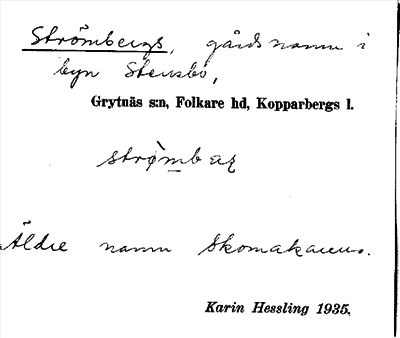 Strömbergs, gårdsnamn i
byn Stensbo,
Grytnäs s:n, Folkare hd, Kopparbergs l.
Äldre namn Skomakarens.
Karin Hessling 1935.